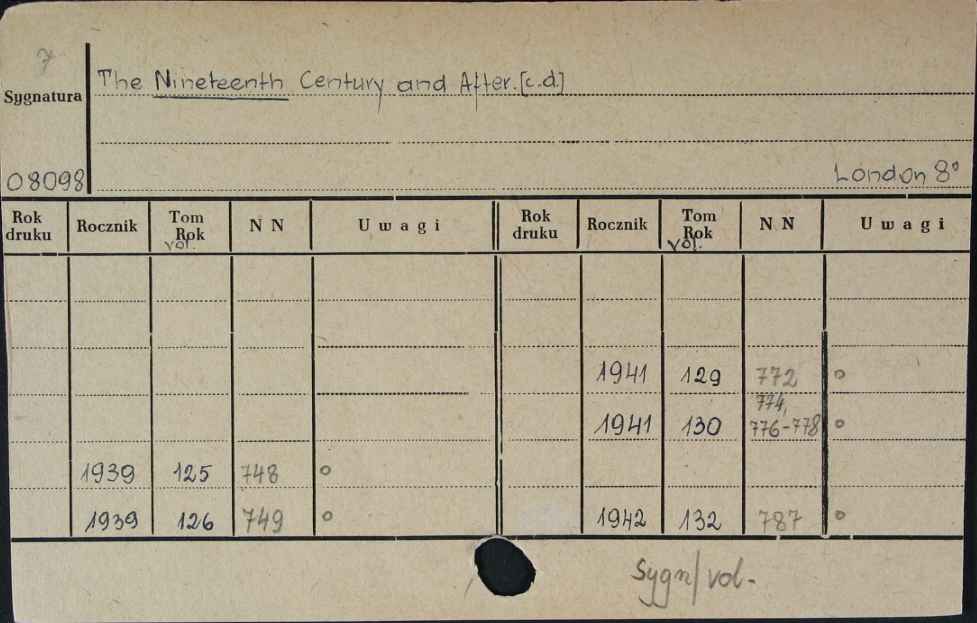 7
Sygnatura
The Nineteenth Century and After. [c.d.]
08098
London 8°
Rok druku Rocznik Tom Rok vol. N N Uwagi Rok druku Rocznik Tom Rok vol. N N Uwagi
1941 129 772 o
1941 130 774, 776-778 o
1939 125 748 o
1939 126 749 o 1942 132 787 o
Sygn/vol.